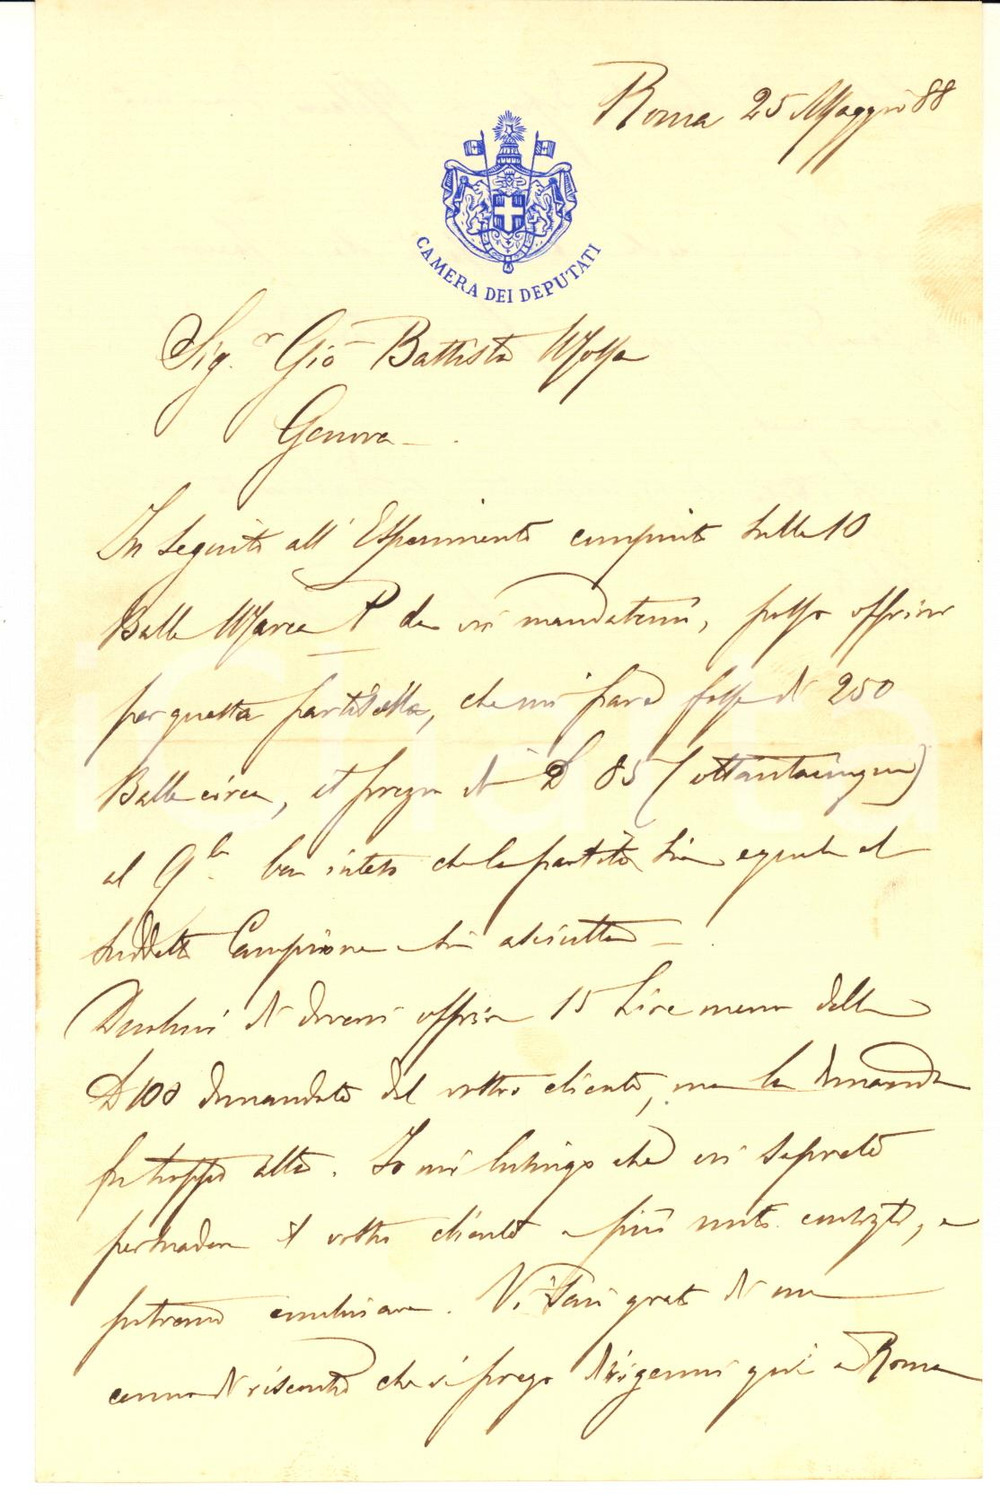 Roma 25 Maggio 88
CAMERA DEI DEPUTATI
Sig.r Gio Battista
Genova
In seguito all' Esperimento compiuto sulle 10
Balle Marca P da voi mandatemi, posso offrire
per questa partitella, che mi pare fosse di 250
Balle circa, il prezzo di L 85 (ottantacinque)
al Q.le ben inteso che la partita sia eguale al
suddetto Campione e sia asciutta
Duolmi di dovervi offrire 15 Lire meno delle
L 100 domandate dal vostro cliente, ma la domanda
fu troppo alta. Io mi lusingo che voi saprete
persuadere il vostro cliente a più miti consigli, e
potremo combinare. Vi sarò grato di un
cenno di riscontro che vi prego dirigermi qui a Roma